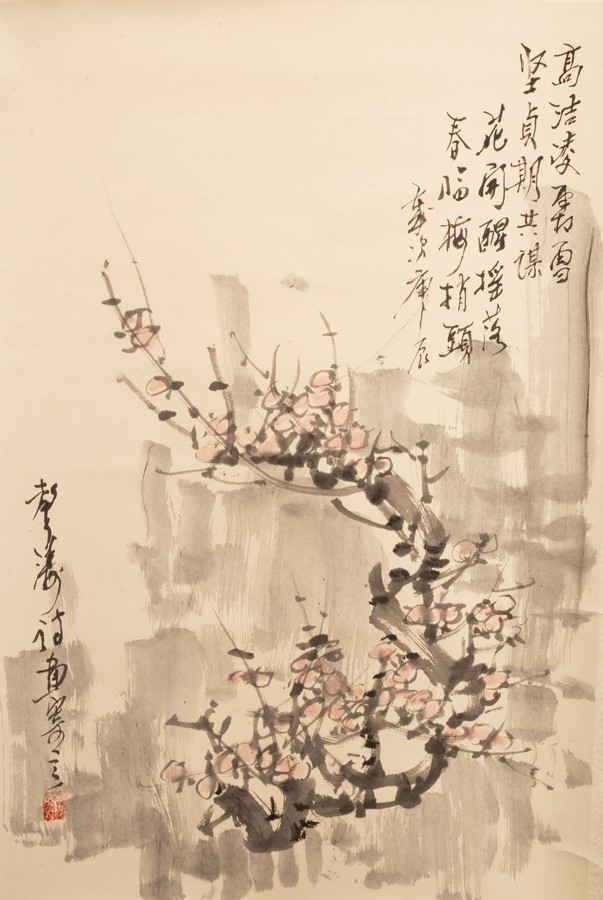 高洁凌霜雪
坚贞期共谋
花开醒摇落
春临梅梢頭
岁次庚辰
诗画